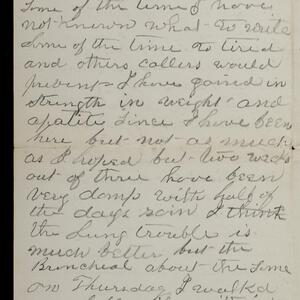 Some of the time I have
not known what to write
some of the time so tired
and others callers would
prevent I have gained in
strength in weight and
apatite since I have been
here but not as much
as I hoped but two weeks
out of three have been
very damp with half of
the days rain I think
the Lung trouble is
much better but the
Bronchial about the same
on Thursday I walked